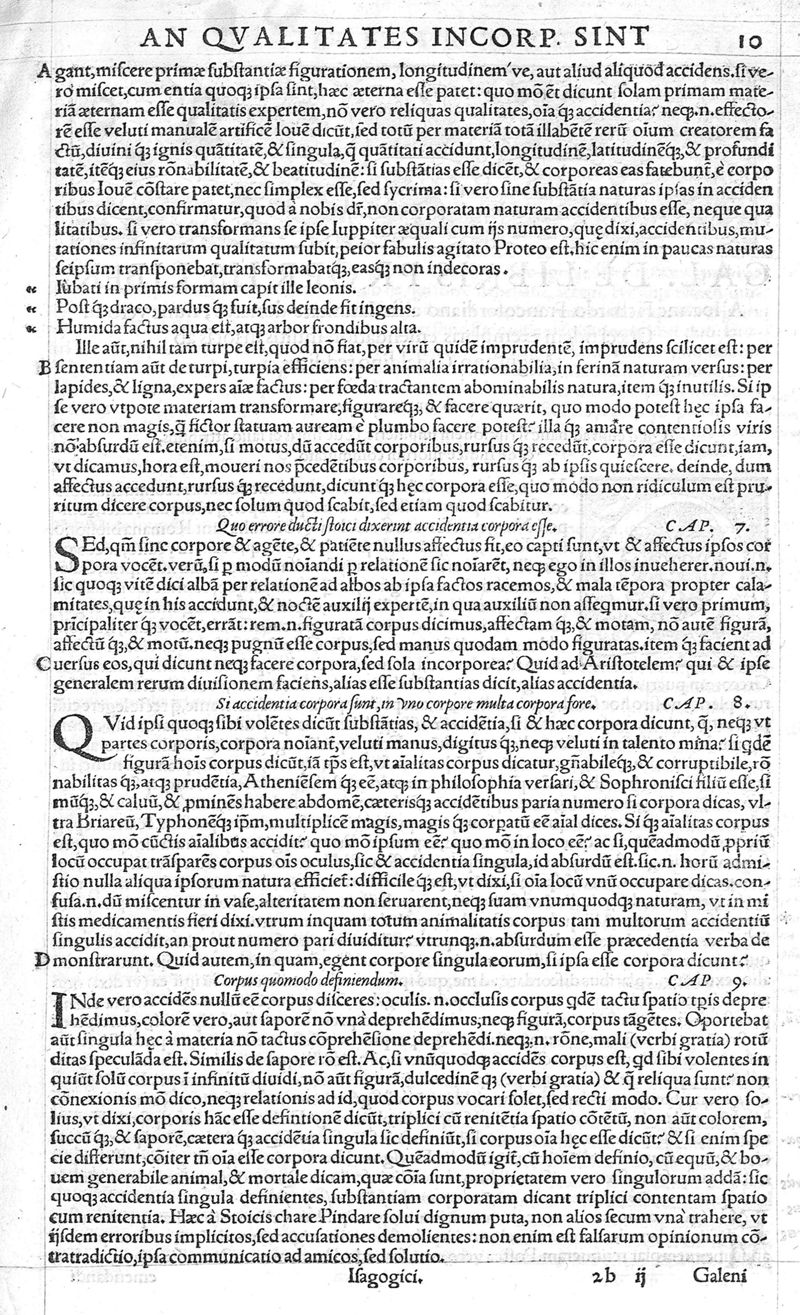 AN QVALITATES INCORP. SINT 10
A gant, miſcere primæ ſubſtantiæ figurationem, longitudinem´ve, aut aliud aliquod accidens. ſi ve-
ro miſcet, cum entia quoqꝫ ipſa ſint, hæc æterna eſſe patet: quo mõ ẽt dicunt ſolam primam mate-
riã æternam eſſe qualitatis expertem, nõ vero reliquas qualitates, oĩa qꝫ accidentia? neqꝫ.n. effecto-
rẽ eſſe veluti manualẽ artificẽ Iouẽ dicũt, ſed totũ per materiã totã illabẽtẽ rerũ oĩum creatorem fa
ctũ, diuini qꝫ ignis quãtitatẽ, & ſingula, q̃ quãtitati accidunt, longitudinẽ, latitudinẽqꝫ, & profundi
tatẽ, itẽqꝫ eius rõnabilitatẽ, & beatitudinẽ: ſi ſubſtãtias eſſe dicẽt, & corporeas eas fatebunt̃, è corpo
ribus Iouẽ cõſtare patet, nec ſimplex eſſe, ſed ſycrima: ſi vero ſine ſubſtãtia naturas ipſas in acciden
tibus dicent, confirmatur, quod à nobis dr̃, non corporatam naturam accidentibus eſſe, neque qua
litatibus. ſi vero transformans ſe ipſe Iuppiter æquali cum ijs numero, quę dixi, accidentibus, mu-
tationes infinitarum qualitatum ſubit, peior fabulis agitato Proteo eſt. hic enim in paucas naturas
ſeipſum tranſponebat, transformabatqꝫ, easqꝫ non indecoras.
« Iubati in primis formam capit ille leonis.
« Poſt qꝫ draco, pardus qꝫ fuit, ſus deinde fit ingens.
« Humida factus aqua eſt, atqꝫ arbor frondibus alta.
Ille aũt, nihil tam turpe eſt, quod nõ fiat, per virũ quidẽ imprudentẽ, imprudens ſcilicet eſt: per
B ſententiam aũt de turpi, turpia efficiens: per animalia irrationabilia, in ferinã naturam verſus: per
lapides, & ligna, expers aĩæ factus: per fœda tractantem abominabilis natura, item qꝫ inutilis. Si ip
ſe vero vtpote materiam transformare, figurareqꝫ, & facere quærit, quo modo poteſt hęc ipſa fa-
cere non magis, q̃ fictor ſtatuam auream è plumbo facere poteſt? illa qꝫ amare contentioſis viris
nõ abſurdũ eſt. etenim, ſi motus, dũ accedũt corporibus, rurſus qꝫ recedũt, corpora eſſe dicunt, iam,
vt dicamus, hora eſt, moueri nos p̃cedẽtibus corporibus, rurſus qꝫ ab ipſis quieſcere. deinde, dum
affectus accedunt, rurſus qꝫ recedunt, dicunt qꝫ hęc corpora eſſe, quo modo non ridiculum eſt pru-
ritum dicere corpus, nec ſolum quod ſcabit, ſed etiam quod ſcabitur.
Quo errore ducti ſtoici dixerint accidentia corpora eſſe. CAP. 7.
SEd, qm̃ ſine corpore & agẽte, & patiẽte nullus affectus fit, eo capti ſunt, vt & affectus ipſos cor
pora vocẽt. verũ, ſi ꝑ modũ noĩandi ꝑ relationẽ ſic noĩarẽt, neqꝫ ego in illos inueherer. noui.n.
ſic quoqꝫ vitẽ dici albã per relationẽ ad albos ab ipſa factos racemos, & mala tẽpora propter cala-
mitates, quę in his accidunt, & noctẽ auxilij expertẽ, in qua auxiliũ non aſſeqmur. ſi vero primum,
prĩcipaliter qꝫ vocẽt, errãt: rem.n. figuratã corpus dicimus, affectam qꝫ, & motam, nõ autẽ figurã,
affectũ qꝫ, & motũ. neqꝫ pugnũ eſſe corpus, ſed manus quodam modo figuratas. item qꝫ facient ad
C uerſus eos, qui dicunt neqꝫ facere corpora, ſed ſola incorporea? Quid ad Ariſtotelem? qui & ipſe
generalem rerum diuiſionem faciens, alias eſſe ſubſtantias dicit, alias accidentia.
Si accidentia corpora ſunt, in vno corpore multa corpora fore. CAP. 8.
QVid ipſi quoqꝫ ſibi volẽtes dicũt ſubſtãtias, & accidẽtia, ſi & hæc corpora dicunt, q̃, neqꝫ vt
partes corporis, corpora noĩant̃, veluti manus, digitus qꝫ, neqꝫ veluti in talento mina? ſi qdẽ
figurã hoĩs corpus dicũt, iã tp̃s eſt, vt aĩalitas corpus dicatur, gñabileqꝫ, & corruptibile, rõ
nabilitas qꝫ, atqꝫ prudẽtia, Atheniẽſem qꝫ eẽ, atqꝫ in philoſophia verſari, & Sophroniſci filiũ eſſe, ſi
mũqꝫ, & caluũ, & ꝓminẽs habere abdomẽ, cæterisqꝫ accidẽtibus paria numero ſi corpora dicas, vl-
tra Briareũ, Typhonẽqꝫ ip̃m, multiplicẽ magis, magis qꝫ corpatũ eẽ aĩal dices. Si qꝫ aĩalitas corpus
eſt, quo mõ cũctis aĩalibus accidit? quo mõ ipſum eẽ? quo mõ in loco eẽ? ac ſi, quẽadmodũ ꝓpriũ
locũ occupat trãſparẽs corpus oĩs oculus, ſic & accidentia ſingula, id abſurdũ eſt. ſic.n. horũ admi-
ſtio nulla aliqua ipſorum natura efficiet̃: difficile qꝫ eſt, vt dixi, ſi oĩa locũ vnũ occupare dicas. con-
fuſa.n. dũ miſcentur in vaſe, alteritatem non ſeruarent, neqꝫ ſuam vnumquodqꝫ naturam, vt in mi
ſtis medicamentis fieri dixi. vtrum inquam totum animalitatis corpus tam multorum accidentiũ
ſingulis accidit, an prout numero pari diuiditur? vtrunqꝫ.n. abſurdum eſſe præcedentia verba de
D monſtrarunt. Quid autem, in quam, egent corpore ſingula eorum, ſi ipſa eſſe corpora dicunt?
Corpus quomodo definiendum. CAP. 9.
INde vero accidẽs nullũ eẽ corpus diſceres: oculis.n. occluſis corpus qdẽ tactu ſpatio tp̃is depre
hẽdimus, colorẽ vero, aut ſaporẽ nõ vnà deprehẽdimus, neqꝫ figurã, corpus tãgẽtes. Oportebat
aũt ſingula hęc à materia nõ tactus cõprehẽſione deprehẽdi. neqꝫ.n. rõne, mali (verbi gratia) rotũ
ditas ſpeculãda eſt. Similis de ſapore rõ eſt. Ac, ſi vnũquodqꝫ accidẽs corpus eſt, qd ſibi volentes in
quiũt ſolũ corpus ĩ infinitũ diuidi, nõ aũt figurã, dulcedinẽ qꝫ (verbi gratia) & q̃ reliqua ſunt? non
cõnexionis mõ dico, neqꝫ relationis ad id, quod corpus vocari ſolet, ſed recti modo. Cur vero ſo-
lius, vt dixi, corporis hãc eſſe defintionẽ dicũt, triplici cũ renitẽtia ſpatio cõtẽtũ, non aũt colorem,
ſuccũ qꝫ, & ſaporẽ, cætera qꝫ accidẽtia ſingula ſic definiũt, ſi corpus oĩa hęc eſſe dicũt? & ſi enim ſpe
cie differunt, cõiter tñ oĩa eſſe corpora dicunt. Quẽadmodũ igit̃, cũ hoĩem definio, cũ equũ, & bo-
uem generabile animal, & mortale dicam, quæ cõia ſunt, proprietatem vero ſingulorum addã: ſic
quoqꝫ accidentia ſingula definientes, ſubſtantiam corporatam dicant triplici contentam ſpatio
cum renitentia. Hæc à Stoicis chare Pindare ſolui dignum puta, non alios ſecum vnà trahere, vt
ijſdem erroribus implicitos, ſed accuſationes demolientes: non enim eſt falſarum opinionum cõ-
tratradictio, ipſa communicatio ad amicos, ſed ſolutio.
Iſagogici. 2b ij Galeni